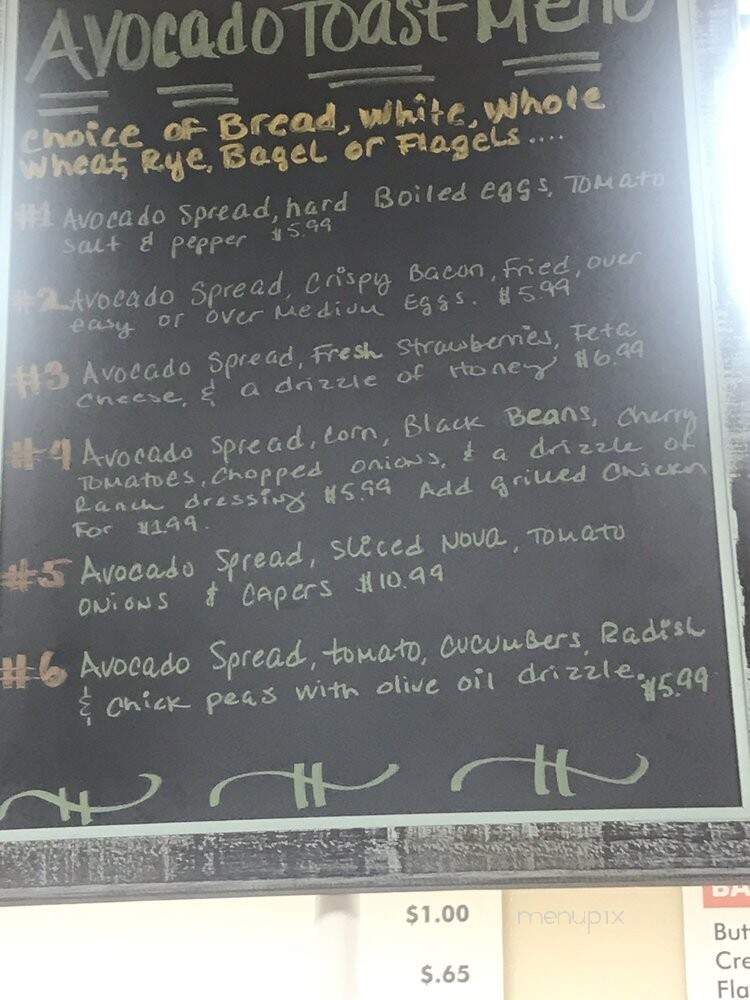 Avocado Toast Menu
Choice of Bread, White, Whole
Wheat, Rye, Bagel or Flagels....
#1 Avocado Spread, hard Boiled eggs, Tomato
Salt & pepper $5.99
#2 Avocado Spread, Crispy Bacon, Fried, over
easy or over Medium Eggs. $5.99
#3 Avocado Spread, Fresh Strawberries, Feta
Cheese, & a drizzle of Honey $6.99
#4 Avocado Spread, Corn, Black Beans, Cherry
Tomatoes, Chopped onions, & a drizzle of
Ranch dressing $5.99 Add grilled Chicken
For $1.99.
#5 Avocado Spread, Sliced Nova, Tomato
Onions & Capers $10.99
#6 Avocado Spread, tomato, Cucumbers, Radish
& Chick peas with olive oil drizzle. $5.99
$1.00
$.65
menupix
BA
But
Cre
Fla